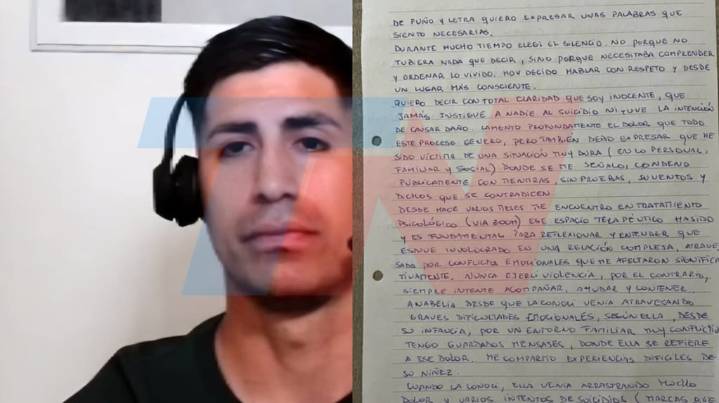 DE PUÑO Y LETRA QUIERO EXPRESAR UNAS PALABRAS QUE
SIENTO NECESARIAS.
DURANTE MUCHO TIEMPO ELEGI EL SILENCIO. NO PORQUE NO
TUBIERA NADA QUE DECIR, SINO PORQUE NECESITABA COMPRENDER
Y ORDENAR LO VIVIDO. HOY DECIDO HABLAR CON RESPETO Y DESDE
UN LUGAR MÁS CONSCIENTE.
QUIERO DECIR CON TOTAL CLARIDAD QUE SOY INOCENTE, QUE
JAMÁS INSTIGUE A NADIE AL SUICIDIO NI TUVE LA INTENCIÓN
DE CAUSAR DAÑO. LAMENTO PROFUNDAMENTE EL DOLOR QUE TODO
ESTE PROCESO GENERO, PERO TAMBIÉN DEBO EXPRESAR QUE HE
SIDO VÍCTIMA DE UNA SITUACIÓN MUY DURA (EN LO PERSONAL,
FAMILIAR Y SOCIAL) DONDE SE ME SEÑALO, CONDENO
PUBLICAMENTE CON MENTIRAS, SIN PRUEBAS, INVENTOS Y
DICHOS QUE SE CONTRADICEN.
DESDE HACE VARIOS MESES ME ENCUENTRO EN TRATAMIENTO
PSICOLÓGICO (VIA ZOOM) ESE ESPACIO TERAPÉUTICO HA SIDO
Y ES FUNDAMENTAL PARA REFLEXIONAR Y ENTENDER QUE
ESTUVE INVOLUCRADO EN UNA RELACIÓN COMPLEJA, ATRAVE
SADA POR CONFLICTOS EMOCIONALES QUE ME AFECTARON SIGNIFICA
TIVAMENTE. NUNCA EJERCI VIOLENCIA, POR EL CONTRARIO,
SIEMPRE INTENTE ACOMPAÑAR, AYUDAR Y CONTENER.
ANABELIA DESDE QUE LA CONOCI VENIA ATRAVESANDO
GRAVES DIFICULTADES EMOCIONALES, SEGÚN ELLA, DESDE
SU INFANCIA, POR UN ENTORNO FAMILIAR MUY CONFLICTIV
TENGO GUARDADOS MENSAJES, DONDE ELLA SE REFIERE
A ESE DOLOR. ME COMPARTIO EXPERIENCIAS DIFICILES DE
SU NIÑEZ.
CUANDO LA CONOCI, ELLA VENIA ARRASTRANDO MUCHO
DOLOR Y VARIOS INTENTOS DE SUICIDIOS (MARCAS QUE